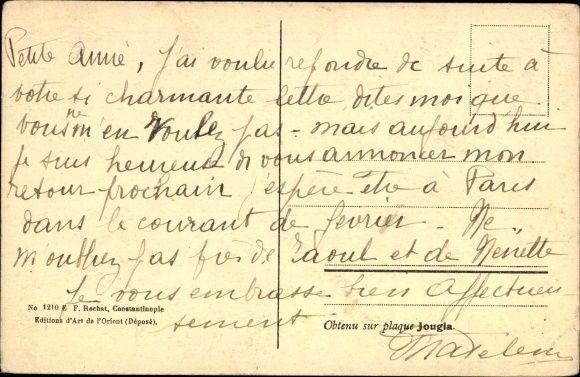 Petite Amie, j'ai voulu répondre de suite à
votre si charmante lettre dites moi que
vous ne m'en voulez pas - mais aujourd'hui
je suis heureuse de vous annoncer mon
retour prochain j'espère être à Paris
dans le courant de février - Ne
m'oubliez pas près de Raoul et de Nénette
Je vous embrasse bien affectueu-
sement
Madeleine
No 1210 E F. Rochat, Constantinople
Editions d'Art de l'Orient (Déposé).
Obtenu sur plaque Jougla.